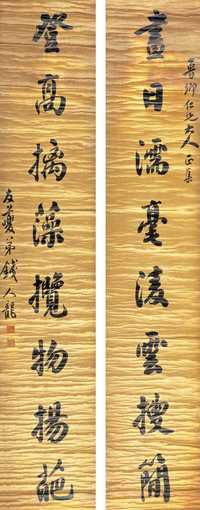 畫日濡毫凌雲搜簡
魯卿仁兄大人正集
登高摛藻攬物揚葩
友夔弟錢人龍